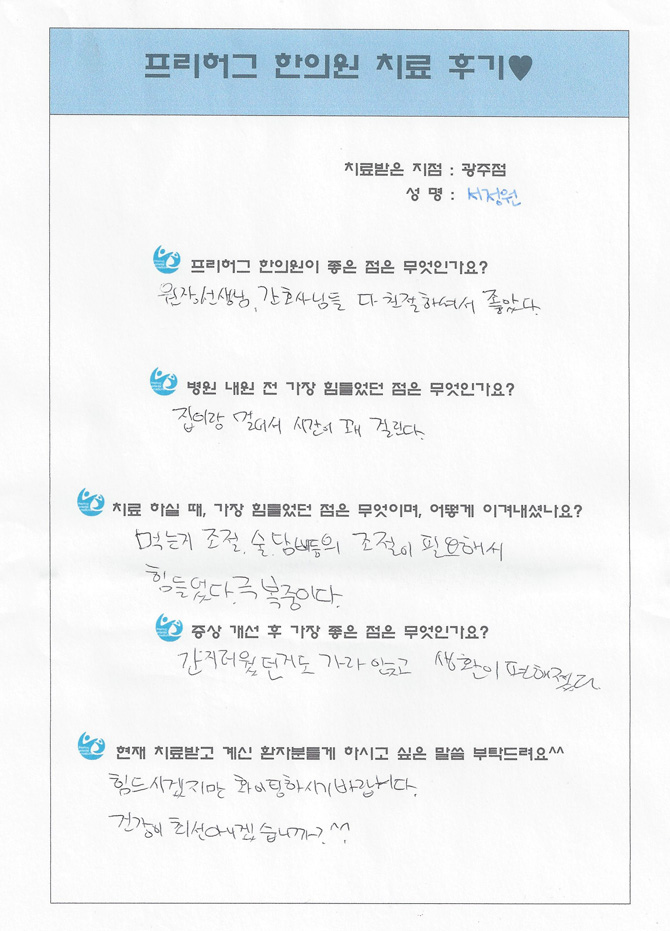 프리허그 한의원 치료 후기♥
치료받은 지점 : 광주점
성 명 : 서정원
프리허그 한의원이 좋은 점은 무엇인가요?
원장선생님, 간호사님들 다 친절하셔서 좋았다.
병원 내원 전 가장 힘들었던 점은 무엇인가요?
집이랑 멀어서 시간이 꽤 걸린다.
치료 하실 때, 가장 힘들었던 점은 무엇이며, 어떻게 이겨내셨나요?
먹는거 조절, 술, 담배등의 조절이 필요해서
힘들었다. 극복중이다.
증상 개선 후 가장 좋은 점은 무엇인가요?
간지러웠던거도 가라앉고 생활이 편해졌다
현재 치료받고 계신 환자분들게 하시고 싶은 말씀 부탁드려요^^
힘드시겠지만 화이팅하시기바랍니다.
건강이 최선아니겠습니까? ^^